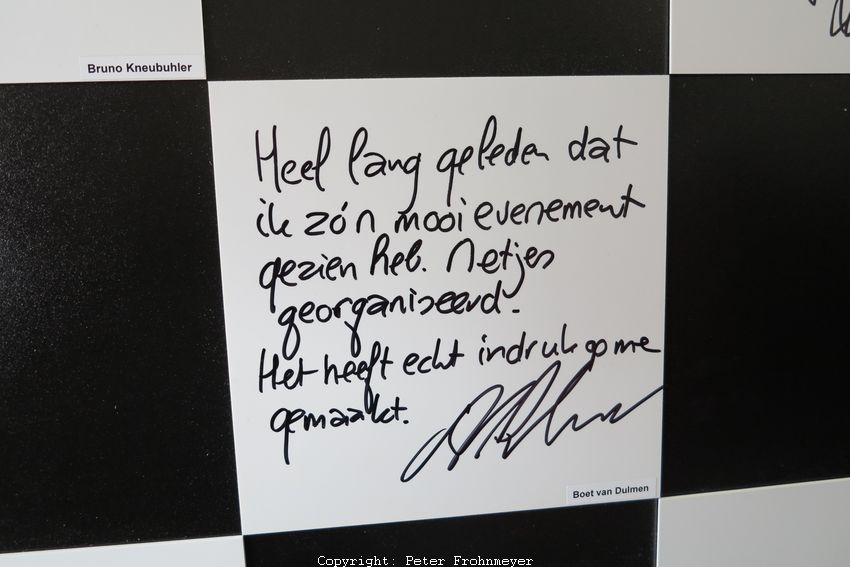 Bruno Kneubuhler
Heel lang geleden dat
ik zó'n mooi evenement
gezien heb. Netjes
georganiseerd.
Het heeft echt indruk op me
gemaakt.
Boet van Dulmen
Copyright: Peter Frohnmeyer